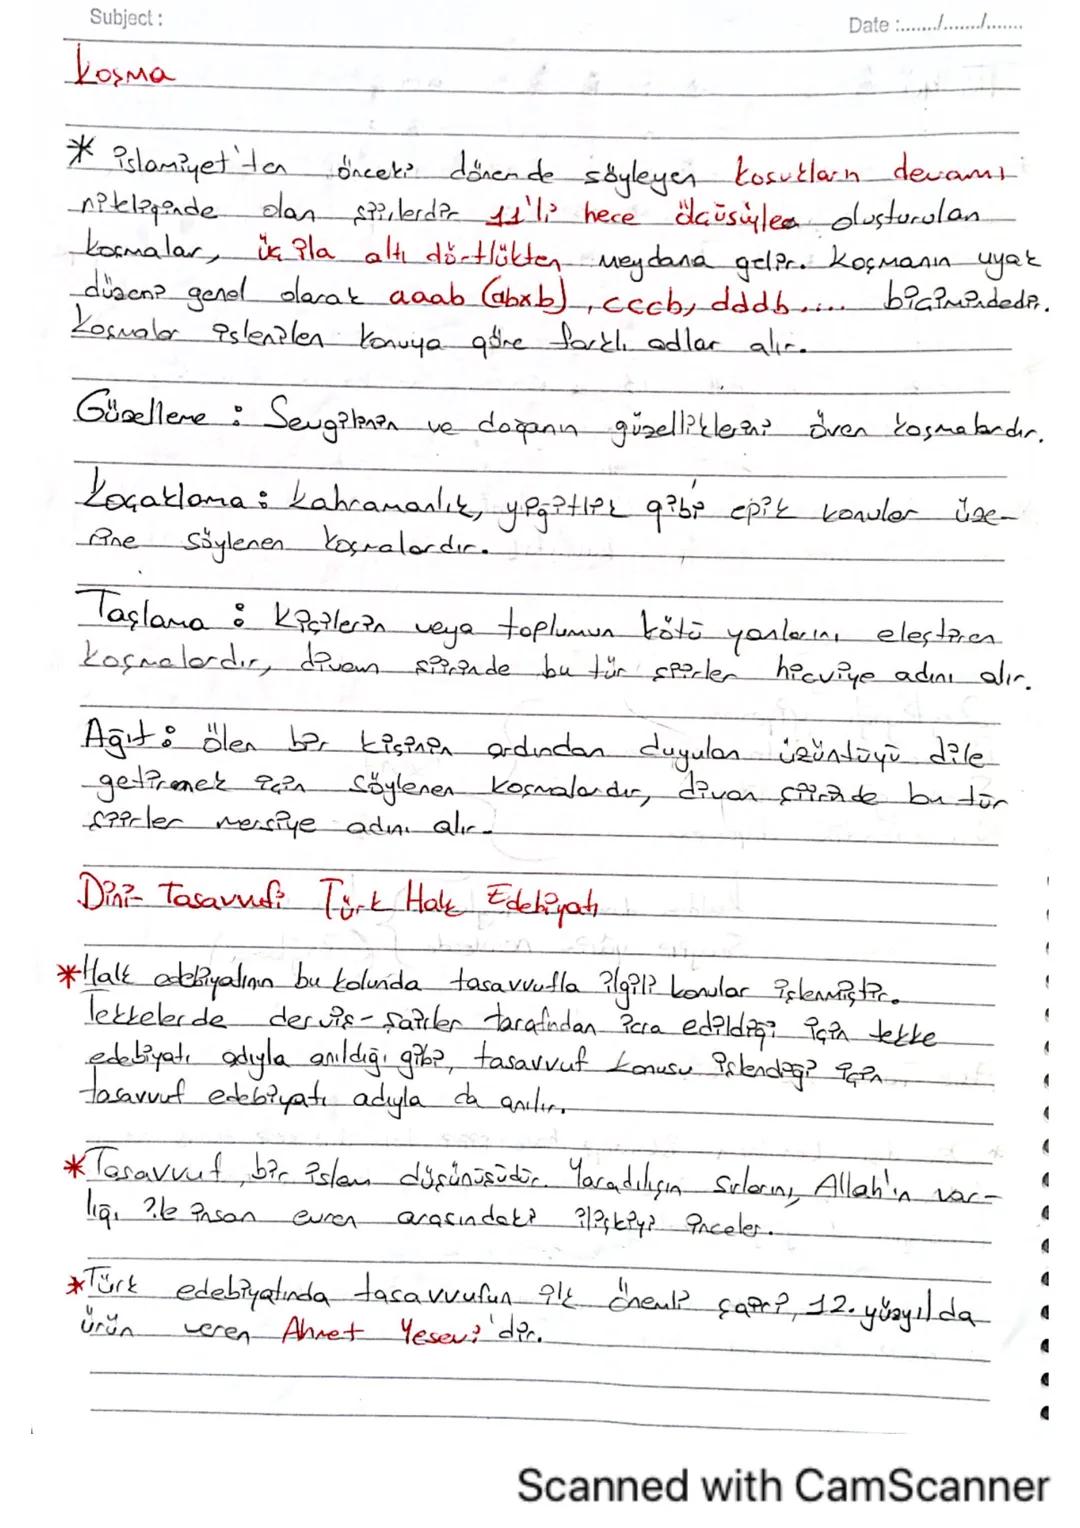 Subject :
Date :......./......./.......
Koşma
* islamiyet'ten önceki dönemde söyleyen koşukların devamı
niteliğinde olan şiirlerdir 11'li hece ölçüsüyle oluşturulan
koşmalar, üç ila altı dörtlükten meydana gelir. Koşmanın uyak
düzeni genel olarak aaab (abxb), cccb, dddb..... biçimindedir.
Koşmalar işlenilen konuya göre farklı adlar alır.
Güzelleme : Sevgilinin ve doğanın güzelliklerini öven koşmalardır.
Koçaklama : kahramanlık, yiğitlik gibi epik konular üze-
rine söylenen koşmalardır.
Taşlama : Kişilerin veya toplumun kötü yanlarını eleştiren
koşmalardır, divan şiirinde bu tür şiirler hicviye adını alır.
Ağıt : ölen bir kişinin ardından duyulan üzüntüyü dile
getirmek için söylenen koşmalardır, divan şiirinde bu tür
şiirler mersiye adını alır.
Dini- Tasavvufi Türk Halk Edebiyatı
*Halk edebiyatının bu kolunda tasavvufla ilgili konular işlenmiştir.
Tekkelerde derviş-şairler tarafından icra edildiği için tekke
edebiyatı adıyla anıldığı gibi, tasavvuf konusu işlendiği için
tasavvuf edebiyatı adıyla da anılır.
*Tasavvuf, bir islam düşünüşüdür. Yaradılışın sırlarını, Allah'ın var-
lığı ile insan evren arasındaki ilişkiyi inceler.
*Türk edebiyatında tasavvufun ilk önemli şairi, 12. yüzyılda
ürün veren Ahmet Yesevi'dir.
Scanned with CamScanner